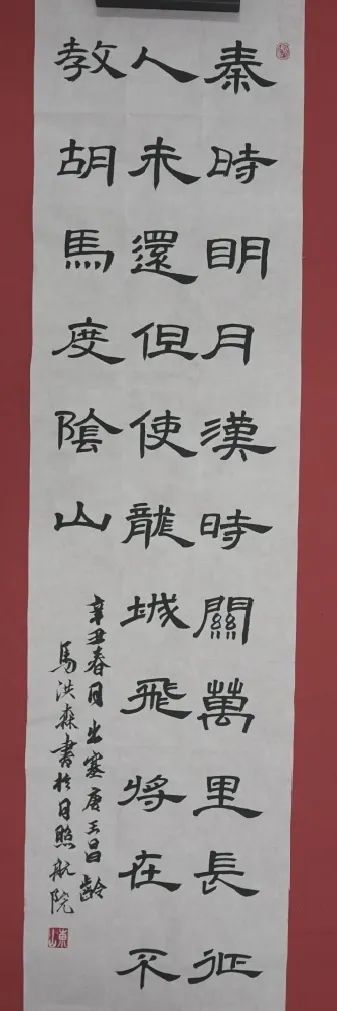 秦時明月漢時關萬里長征
人未還但使龍城飛將在不
教胡馬度陰山
辛丑春月出塞唐王昌齡
馬洪森書於日照航院